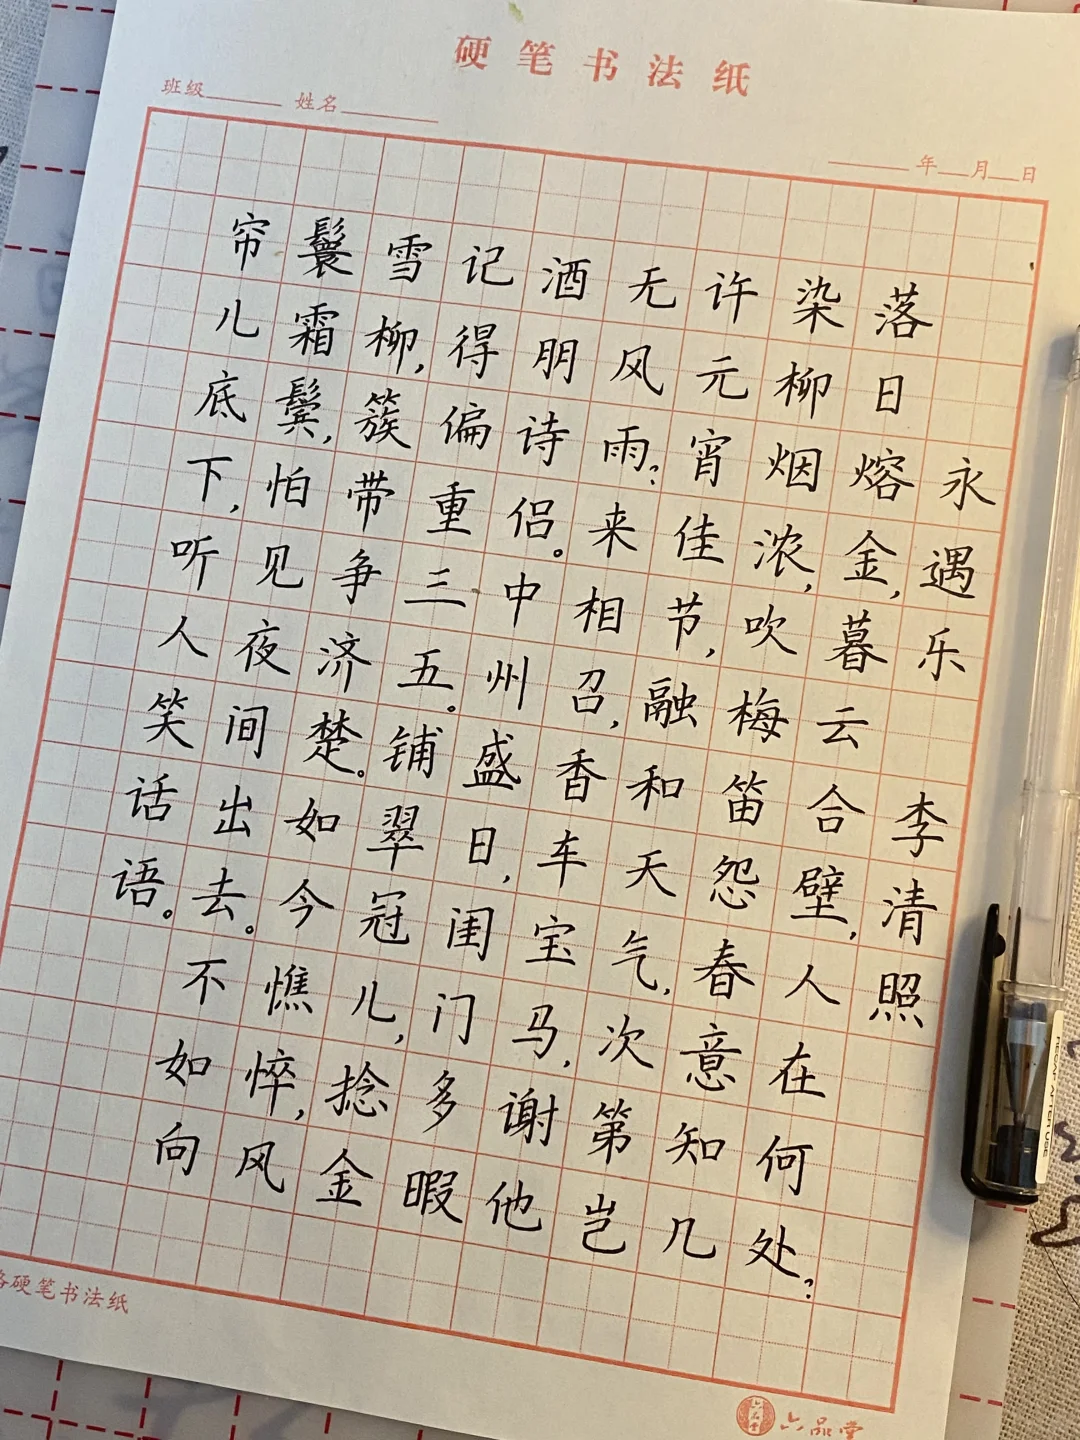 硬笔书法纸
班级 姓名
年 月 日
永遇乐 李清照
落日熔金,暮云合璧,人在何处?
染柳烟浓,吹梅笛怨春意知几
许元宵佳节,融和天气,次第岂
无风雨?来相召,香车宝马,谢他
酒朋诗侣。中州盛日,闺门多暇
记得偏重三五。铺翠冠儿,捻金
雪柳,簇带争济楚。如今憔悴,风
鬟霜鬓,怕见夜间出去。不如向
帘儿底下,听人笑话语。
硬笔书法纸
六品堂